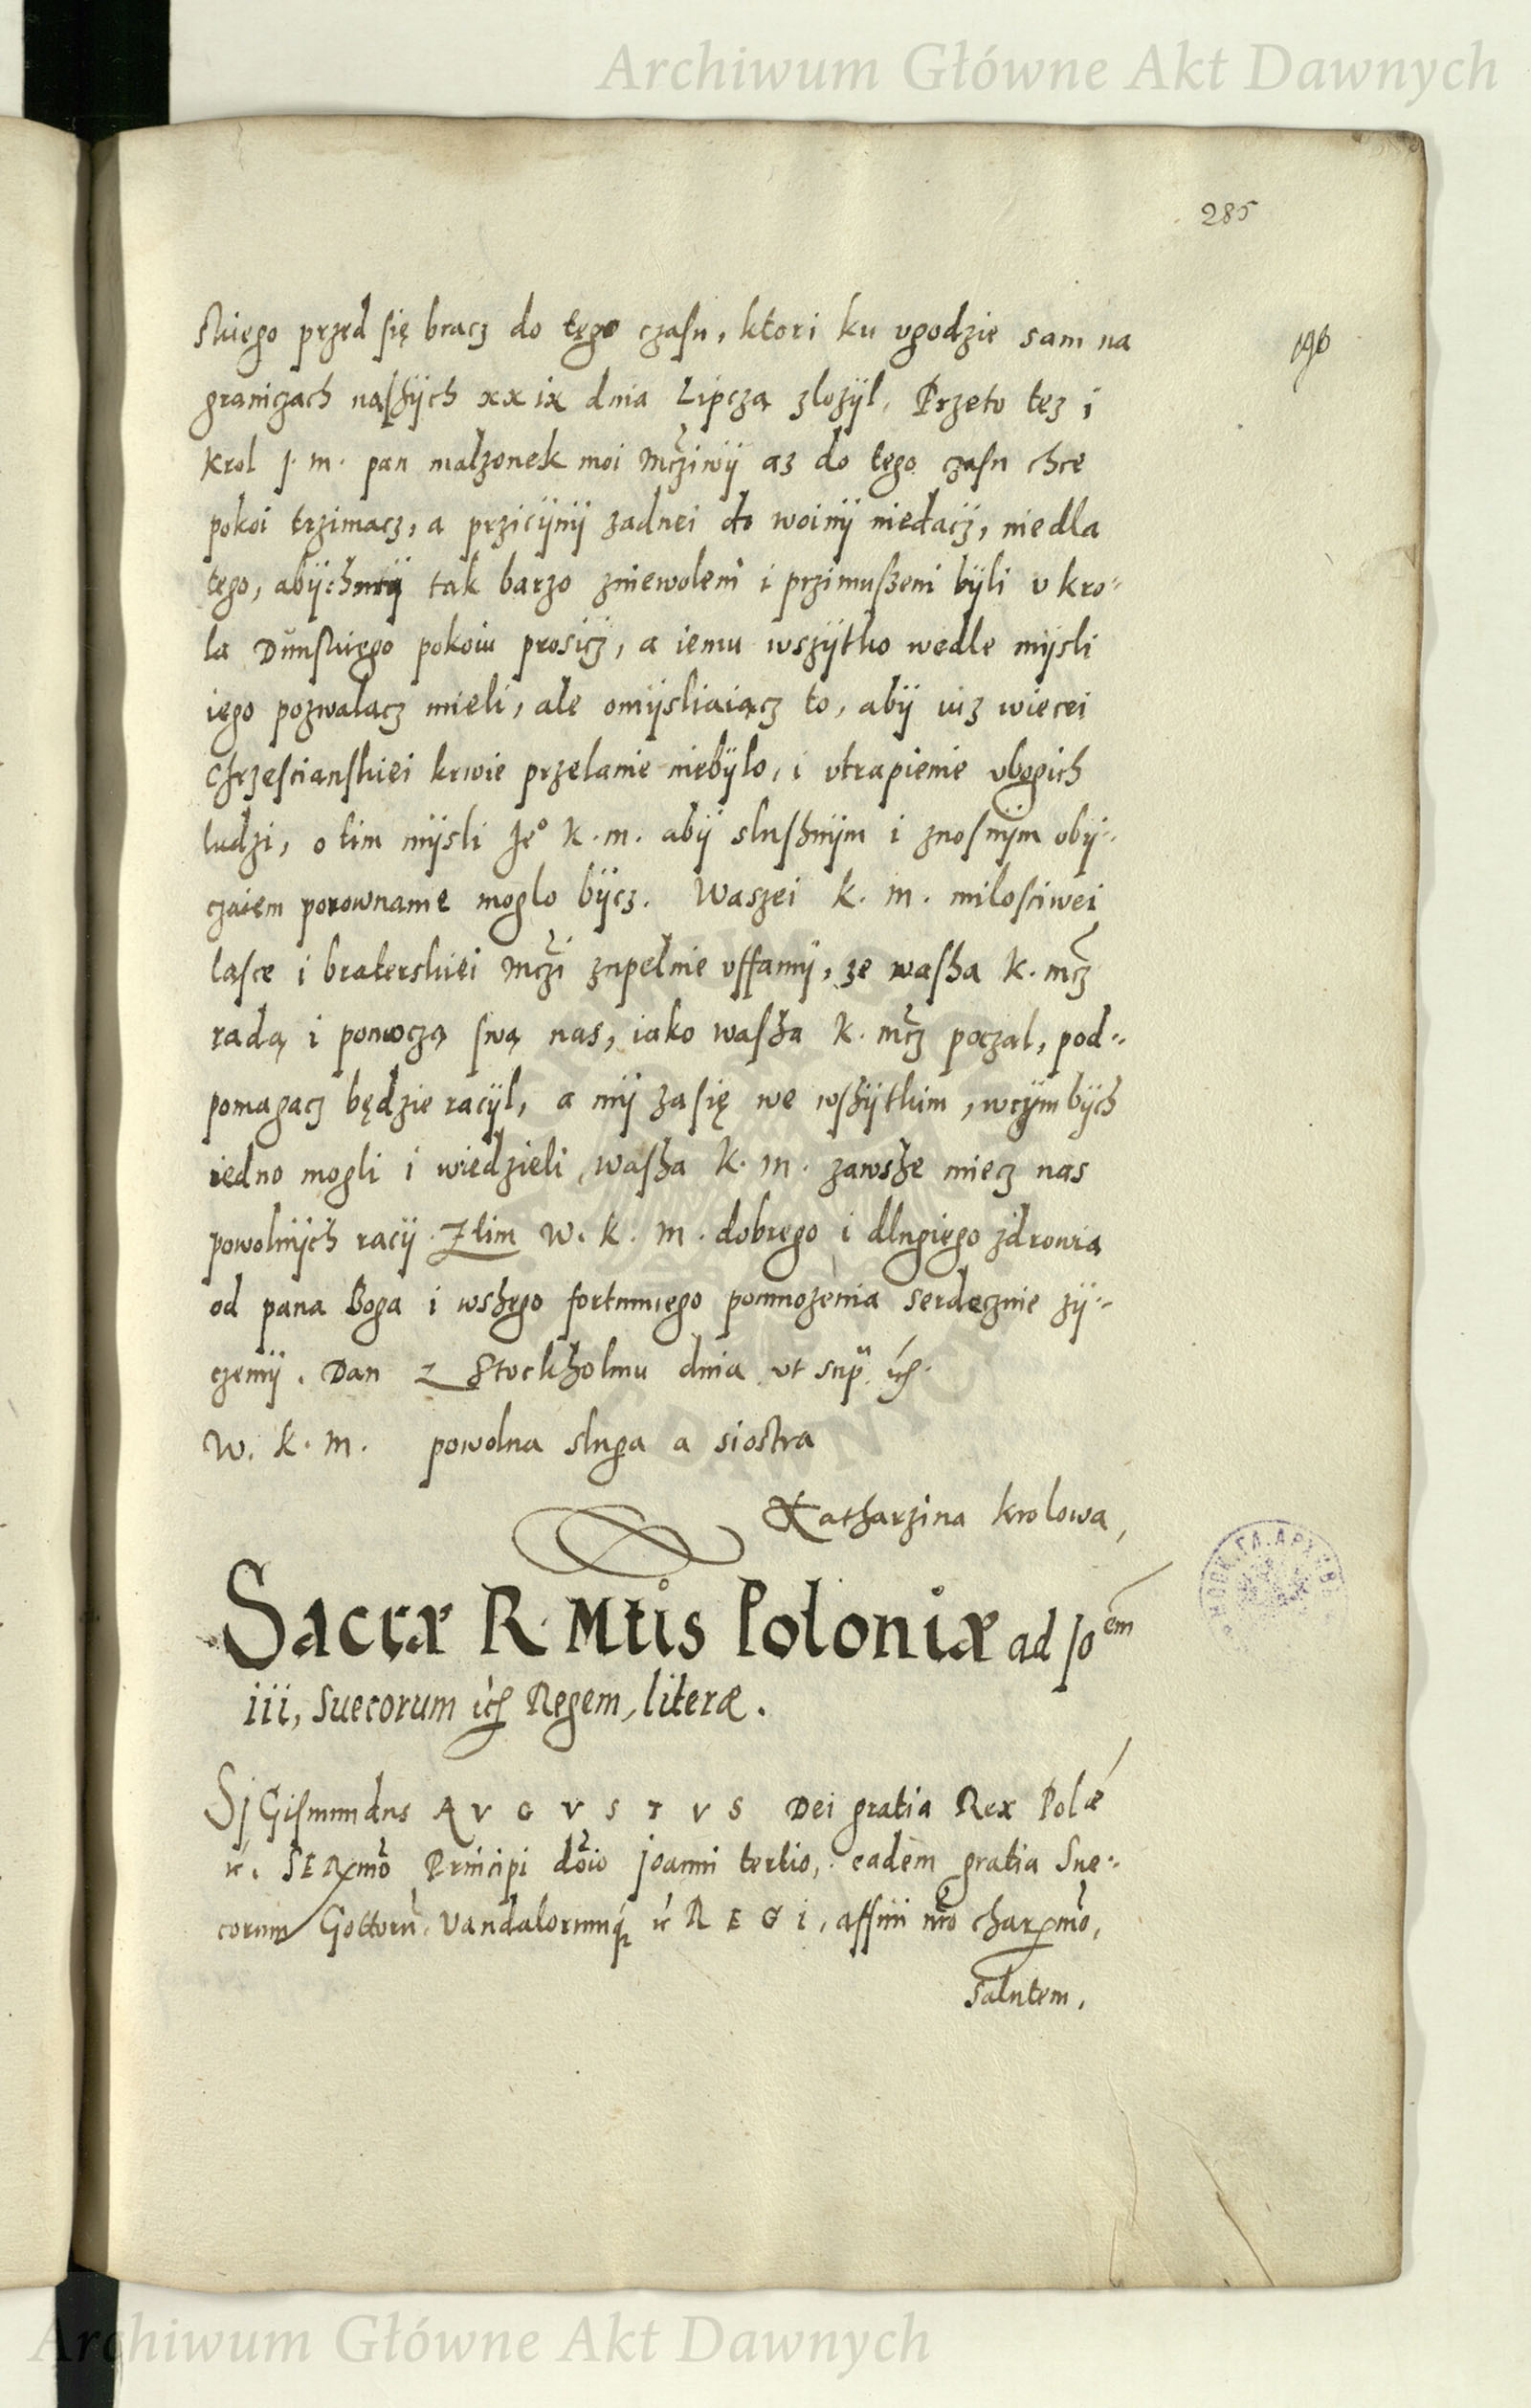 Archiwum Główne Akt Dawnych
285
196
skiego przed się bracz do tęgo czasu, ktori ku vgodzie sam na
graniczach naszÿch xxix dnia Lipcza zlozÿl, Przeto tez i
Krol J. m. pan malzonek moi Mcziwÿ az do tego czasu chce
pokoi trzimacz, a przicÿnÿ zadnei do woinÿ niedacz, nie dla
tego, abÿchmÿ tak barzo zniewoleni i przimuszeni bÿli v kro-
la Dunskięgo pokoiu prosicz, a iemu wszÿtko wedle mÿsli
iego pozwalacz mieli, ale omÿsliaiącz to, abÿ iuz wiecei
Chrzescianskiei krwie przelanie niebÿlo, i vtrapienie vbogich
ludzi, o tim mÿsli Je° K. m. abÿ slusznÿm i znosnÿm obÿ-
czaiem porownanie moglo bÿcz. Waszei K. m. milosciwei
lasce i braterskiei Mczi zupelnie vffamÿ, ze wasza K. mcz
radą i pomoczą swą nas, iako wasza K. mcz poczal, pod-
pomagacz będzie racÿl, a mÿ zasię we wszÿtkim, wczÿm bÿch
iedno mogli i wiedzieli, wasza K. m. zawsze miecz nas
powolnÿch racÿ. Ztim W. K. m. dobrego i dlugięgo zdrowia
od pana Boga i wszego fortunnego pomnozenia serdecznie zÿ-
czemÿ. Dan z Stockholmu dnia vt sup. ꝛc.
W. K. m. powolna sluga a siostra
Katharzina krolowa,
Sacræ R. Mtis Poloniæ ad Jo^em
iii, Suecorum ꝛc Regem, literæ.
Sigismundus AVGVSTVS Dei gratia Rex Polæ
ꝛc. SERmo Principi dnio Joanni tertio, eadem gratia Sue-
corum Gottoru, Vandalorumq ꝛc REGI, affini nro charmo,
Salutem.
Archiwum Główne Akt Dawnych